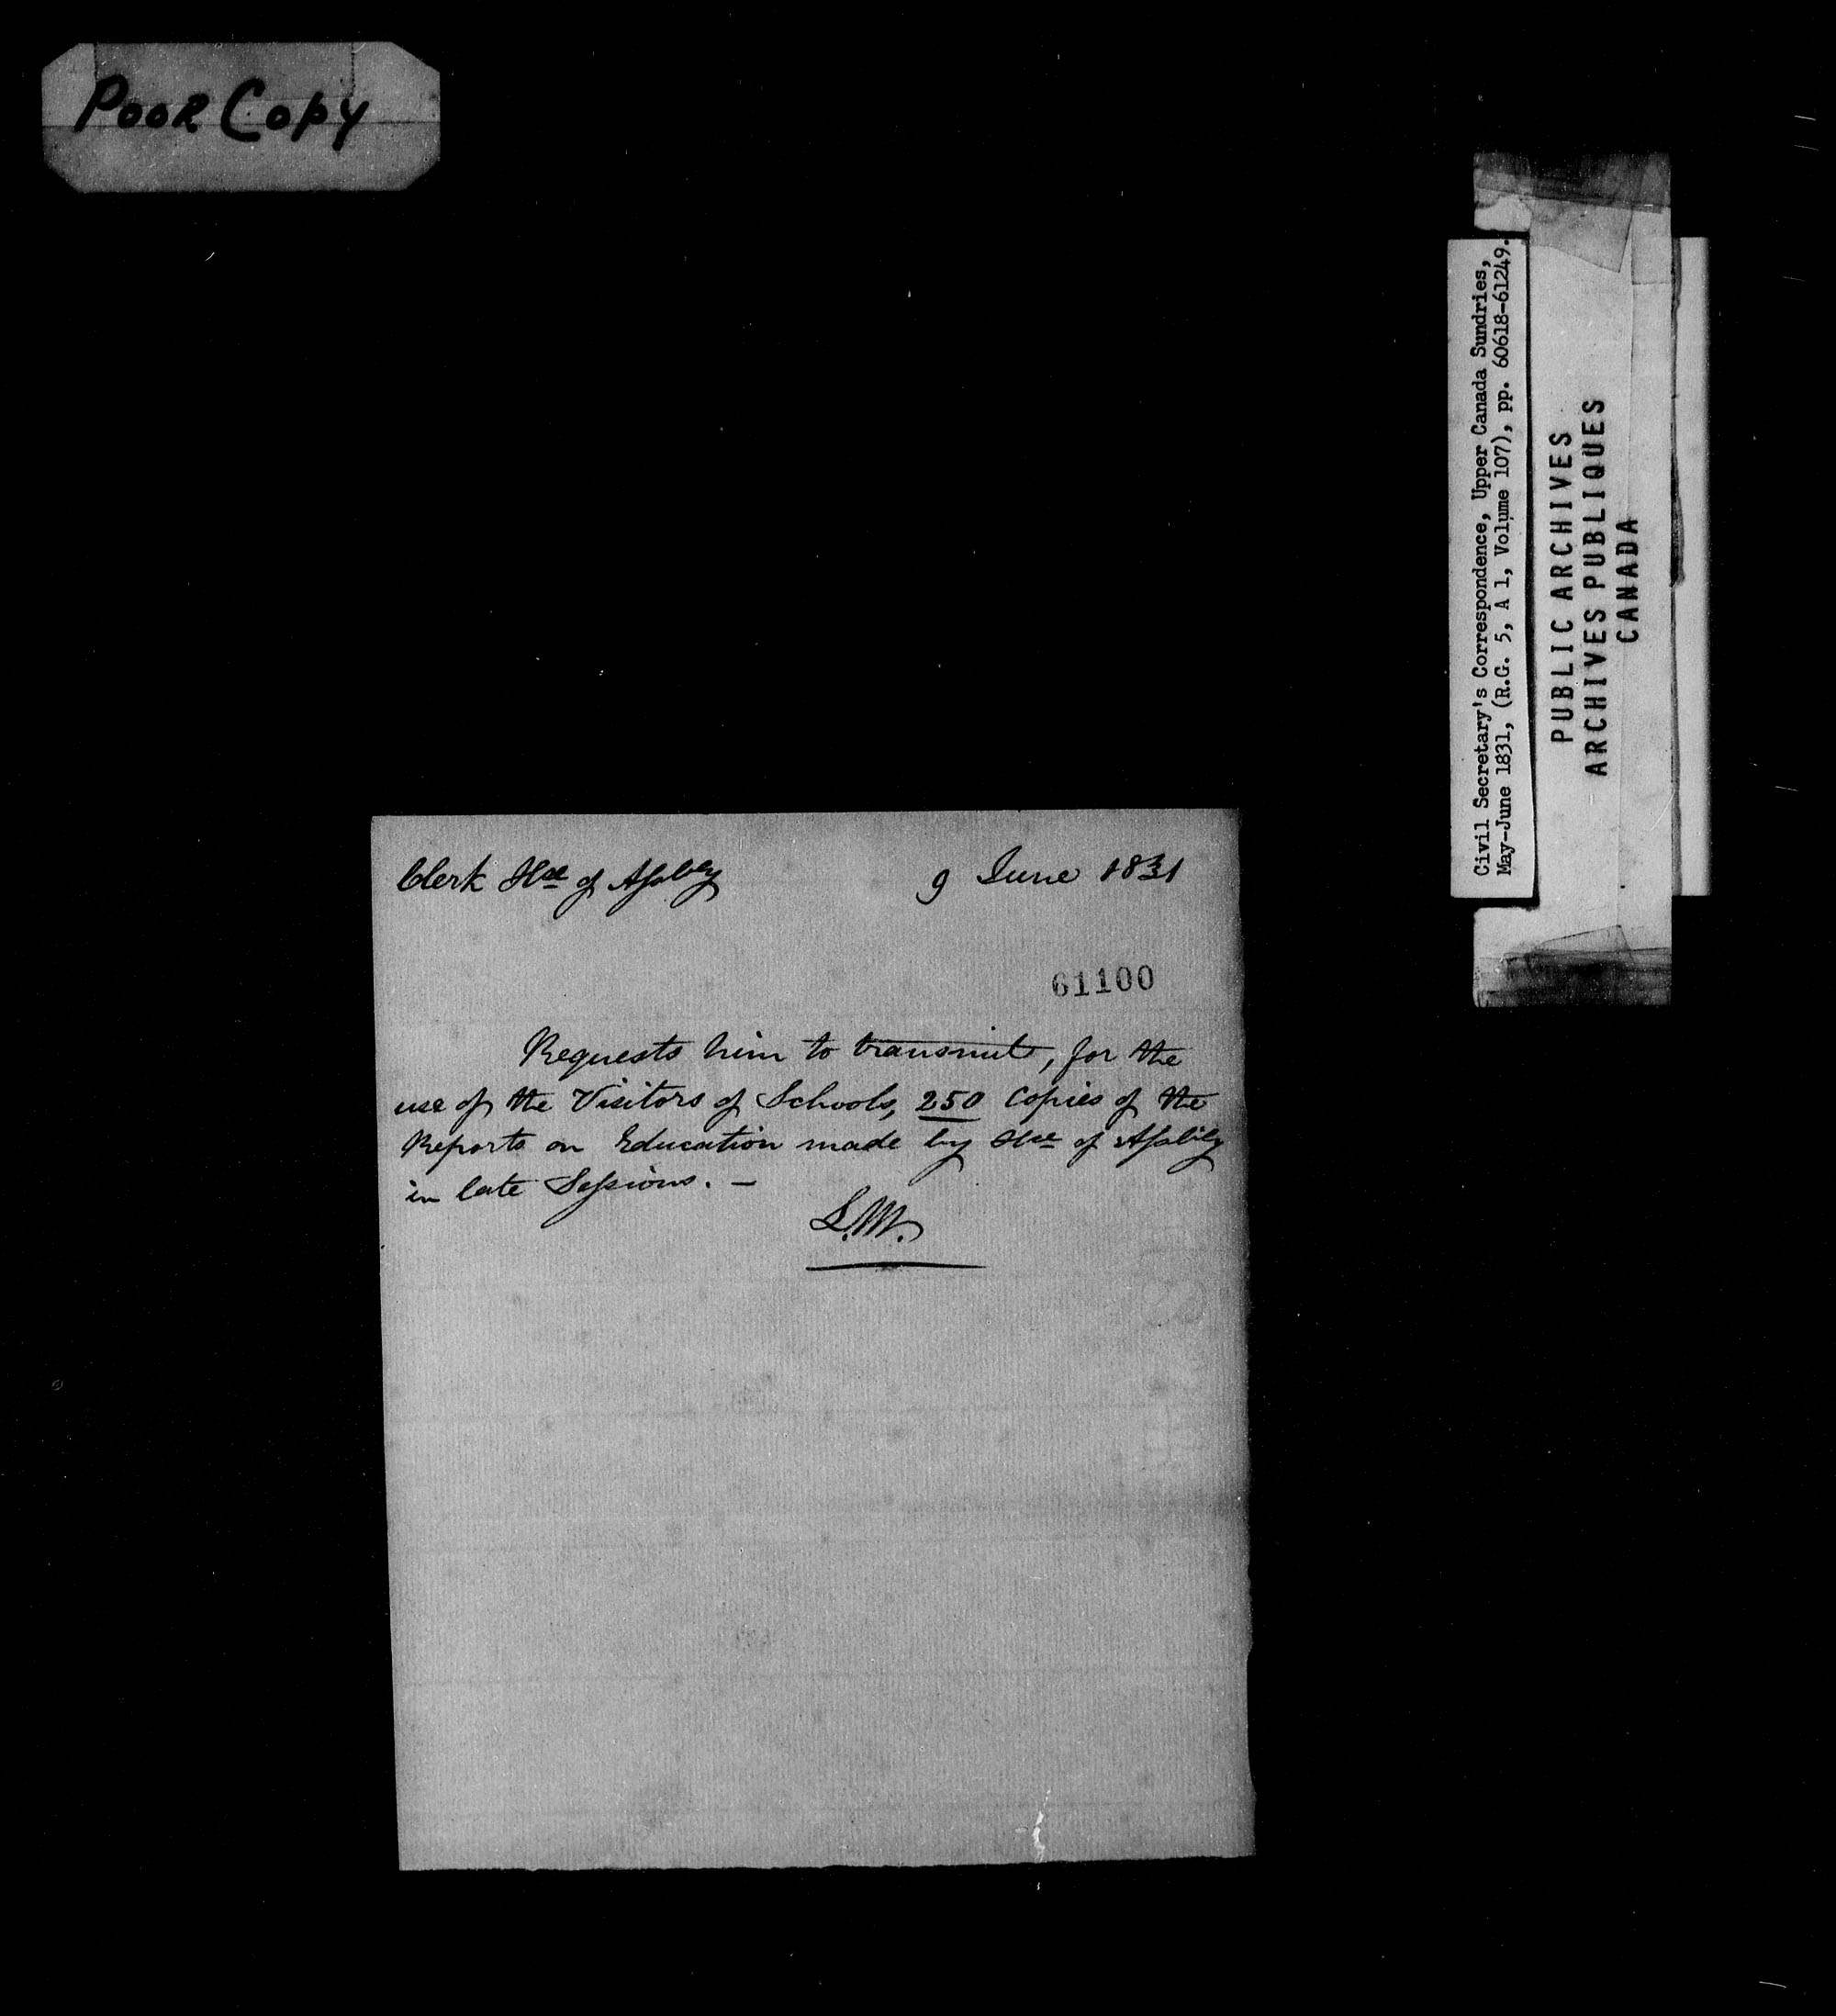 Poor Copy
Civil Secretary's Correspondence, Upper Canada Sundries,
May-June 1831, (R.G. 5, A 1, Volume 107), pp. 60618-61249.
PUBLIC ARCHIVES
ARCHIVES PUBLIQUES
CANADA
Clerk Hse of Assbly 9 June 1831
61100
Requests him to transmit, for the
use of the Visitors of Schools, 250 Copies of the
Reports on Education made by Hse of Assbly
in late Sessions. —
L.M.